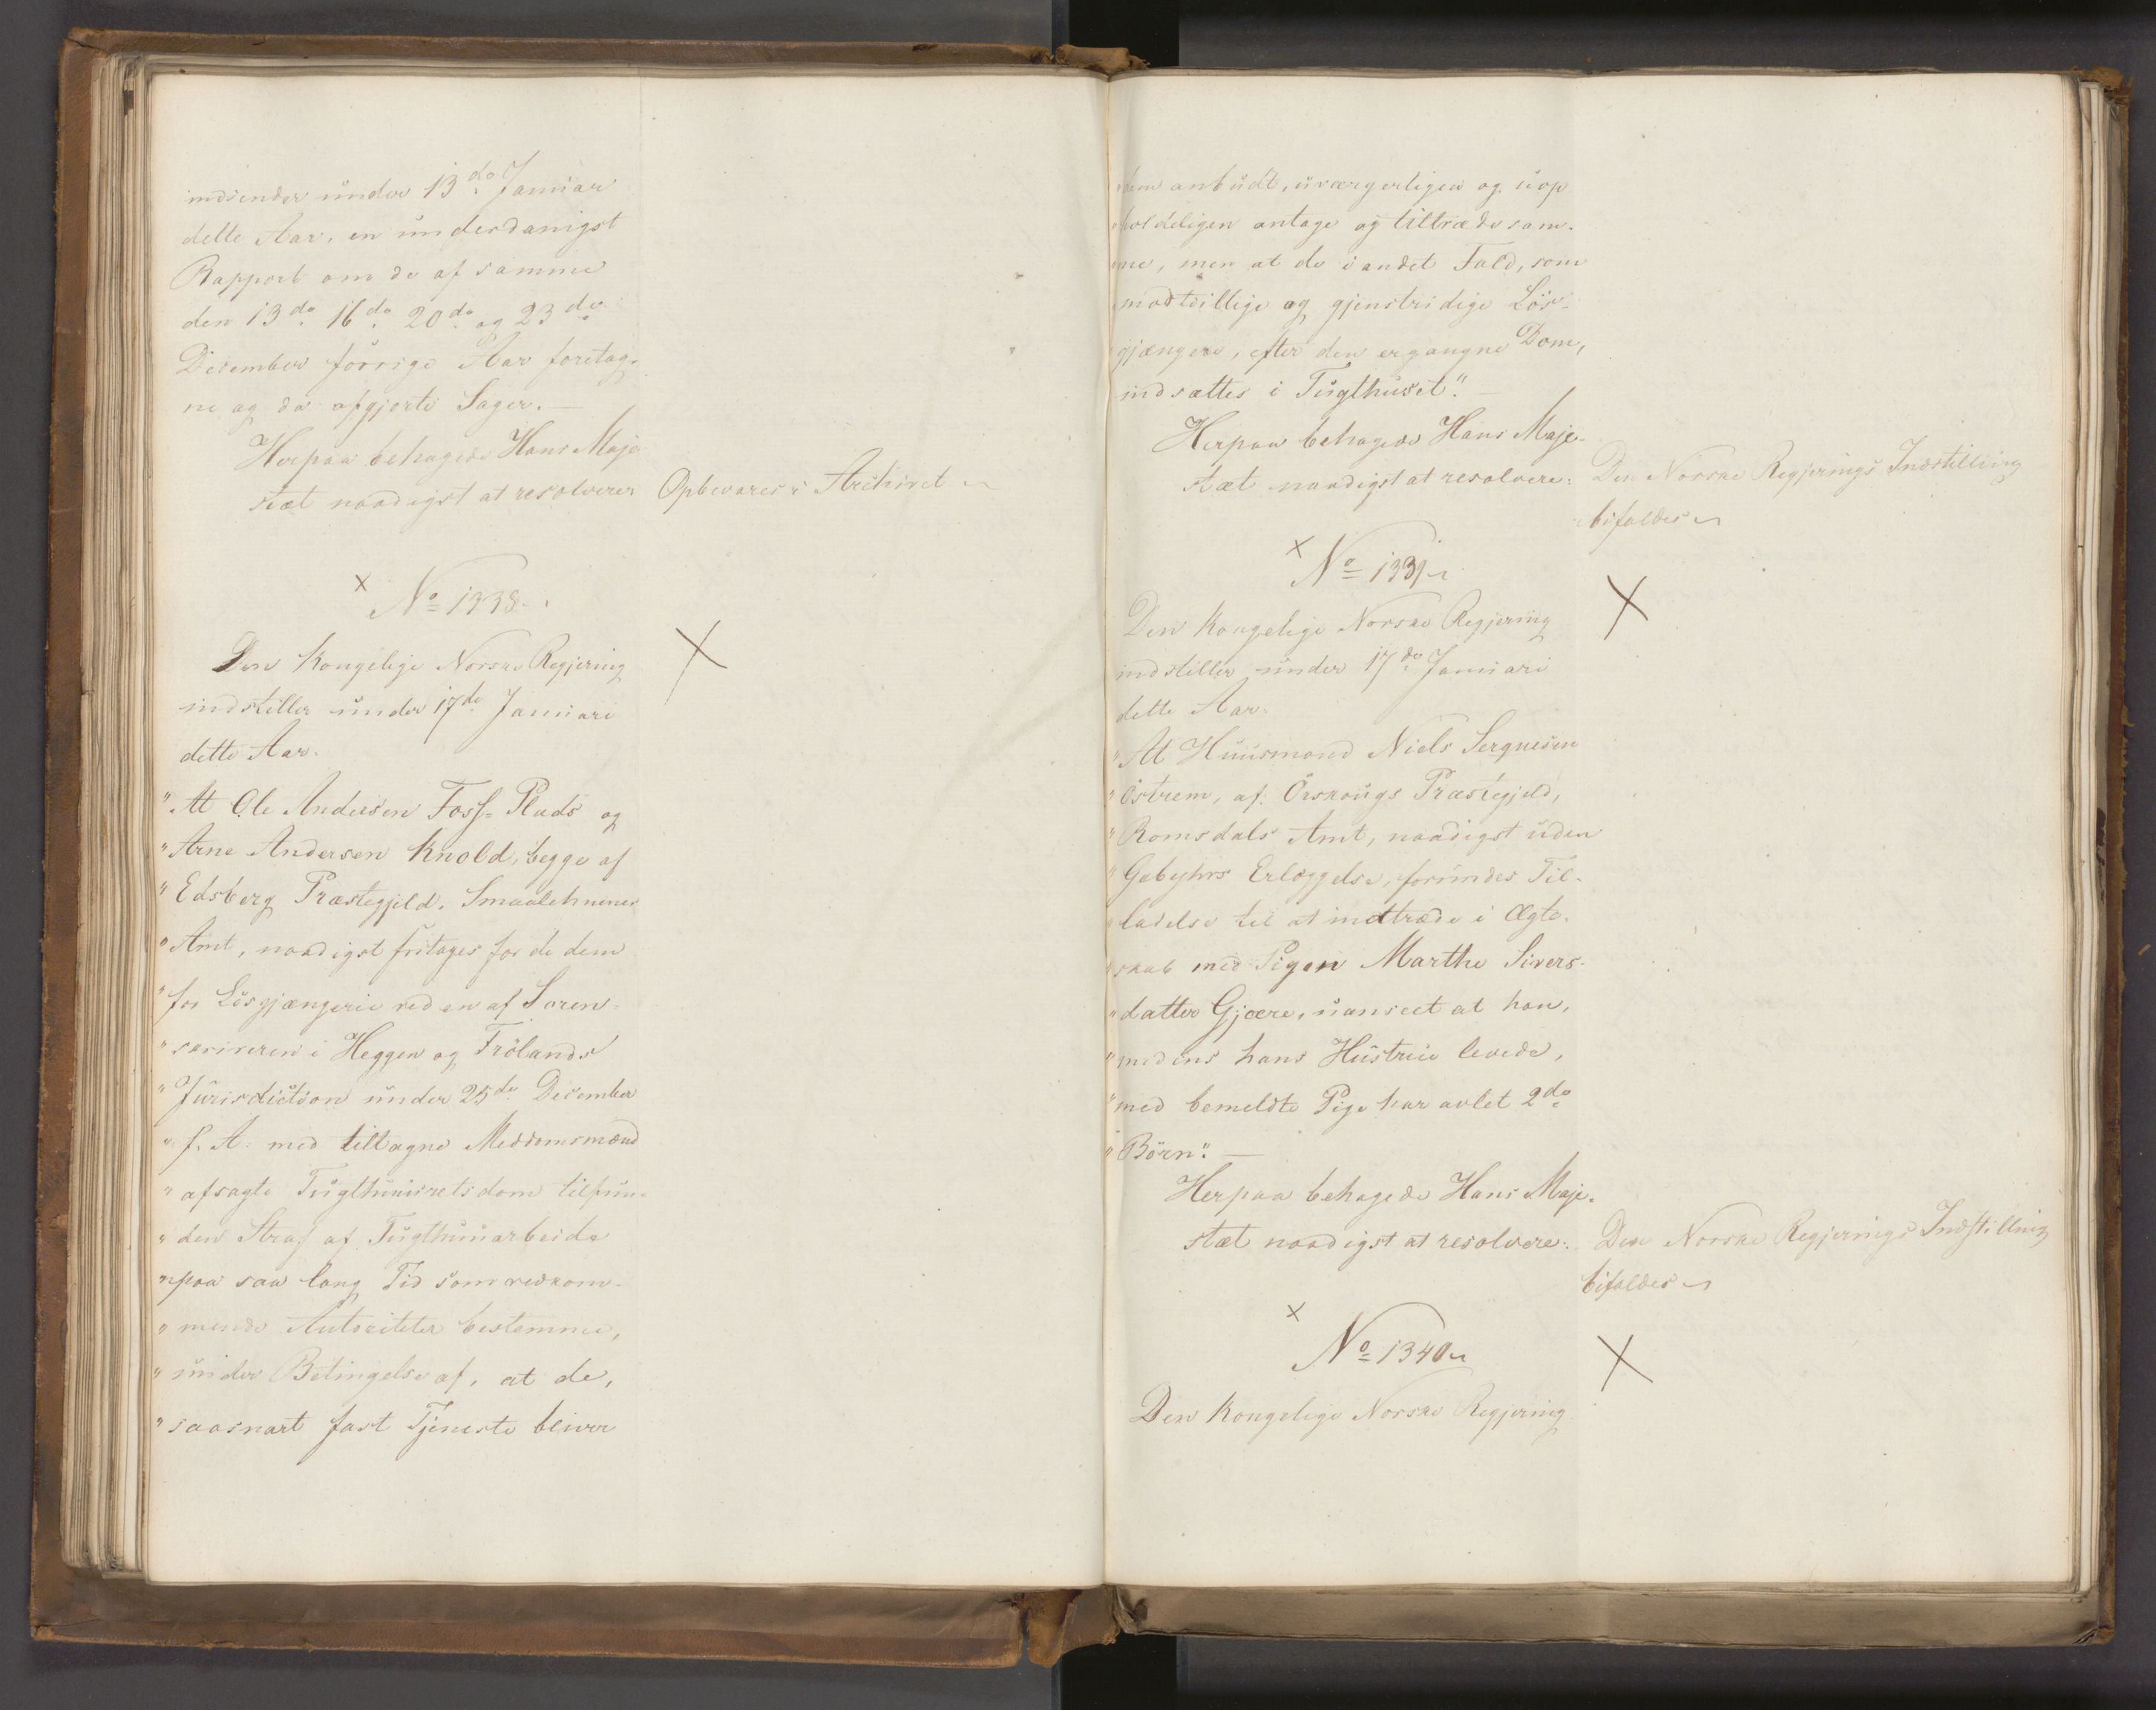 indsender under 13de Januar
dette Aar, en underdanigst
Rapport om de af samme
den 13de 16de 20de og 23de
December forrige Aar foretag-
ne og da afgjorte Sager. —
Herpaa behagede Hans Maje-
stæt naadigst at resolvere:
Opbevares i Archivet
× No 1338.
Den Kongelige Norske Regjering
indstiller under 17de Januari
dette Aar.
"At Ole Andersen Foss-Plads og
"Arne Andersen Knold, begge af
"Edsberg Præstegjeld, Smaalehnenes
"Amt, naadigst fritages for de dem
"for Lösgjængerie ved en af Soren-
"skriveren i Heggen og Frölands
"Jurisdiction under 25de December
"f. A. med tiltagne Meddomsmænd
"afsagte Tugthuusretsdom tilfun-
"den Straf af Tugthuusarbeide
"paa saa lang Tid som vedkom-
"mende Autoriteter bestemme,
"under Betingelse af, at de,
"saasnart fast Tjeneste bliver
"dem anbudt, uvægerligen og uop-
"holdeligen antage og tiltræde sam-
"me, men at de i andet Fald, som
"modvillige og gjenstridige Lös-
"gjængere, efter den ergangne Dom,
"indsættes i Tugthuset". —
Herpaa behagede Hans Maje-
stæt naadigst at resolvere:
Den Norske Regjerings Indstilling
bifaldes
× No 1339
Den Kongelige Norske Regjering
indstiller under 17de Januari
dette Aar.
"At Huusmand Niels Sergnesen
"Östrem, af Örskougs Præstegjeld,
"Romsdals Amt, naadigst uden
"Gebyhrs Erlæggelse, forundes Til-
"ladelse til at indtræde i Ægte-
"skab med Pigen Marthe Sivers-
"datter Gjære, uanseet at han,
"medens hans Hustrue levede,
"med bemeldte Pige har avlet 2de
"Börn". —
Herpaa behagede Hans Maje-
stæt naadigst at resolvere:
Den Norske Regjerings Indstilling
bifaldes
× No 1340
Den Kongelige Norske Regjering